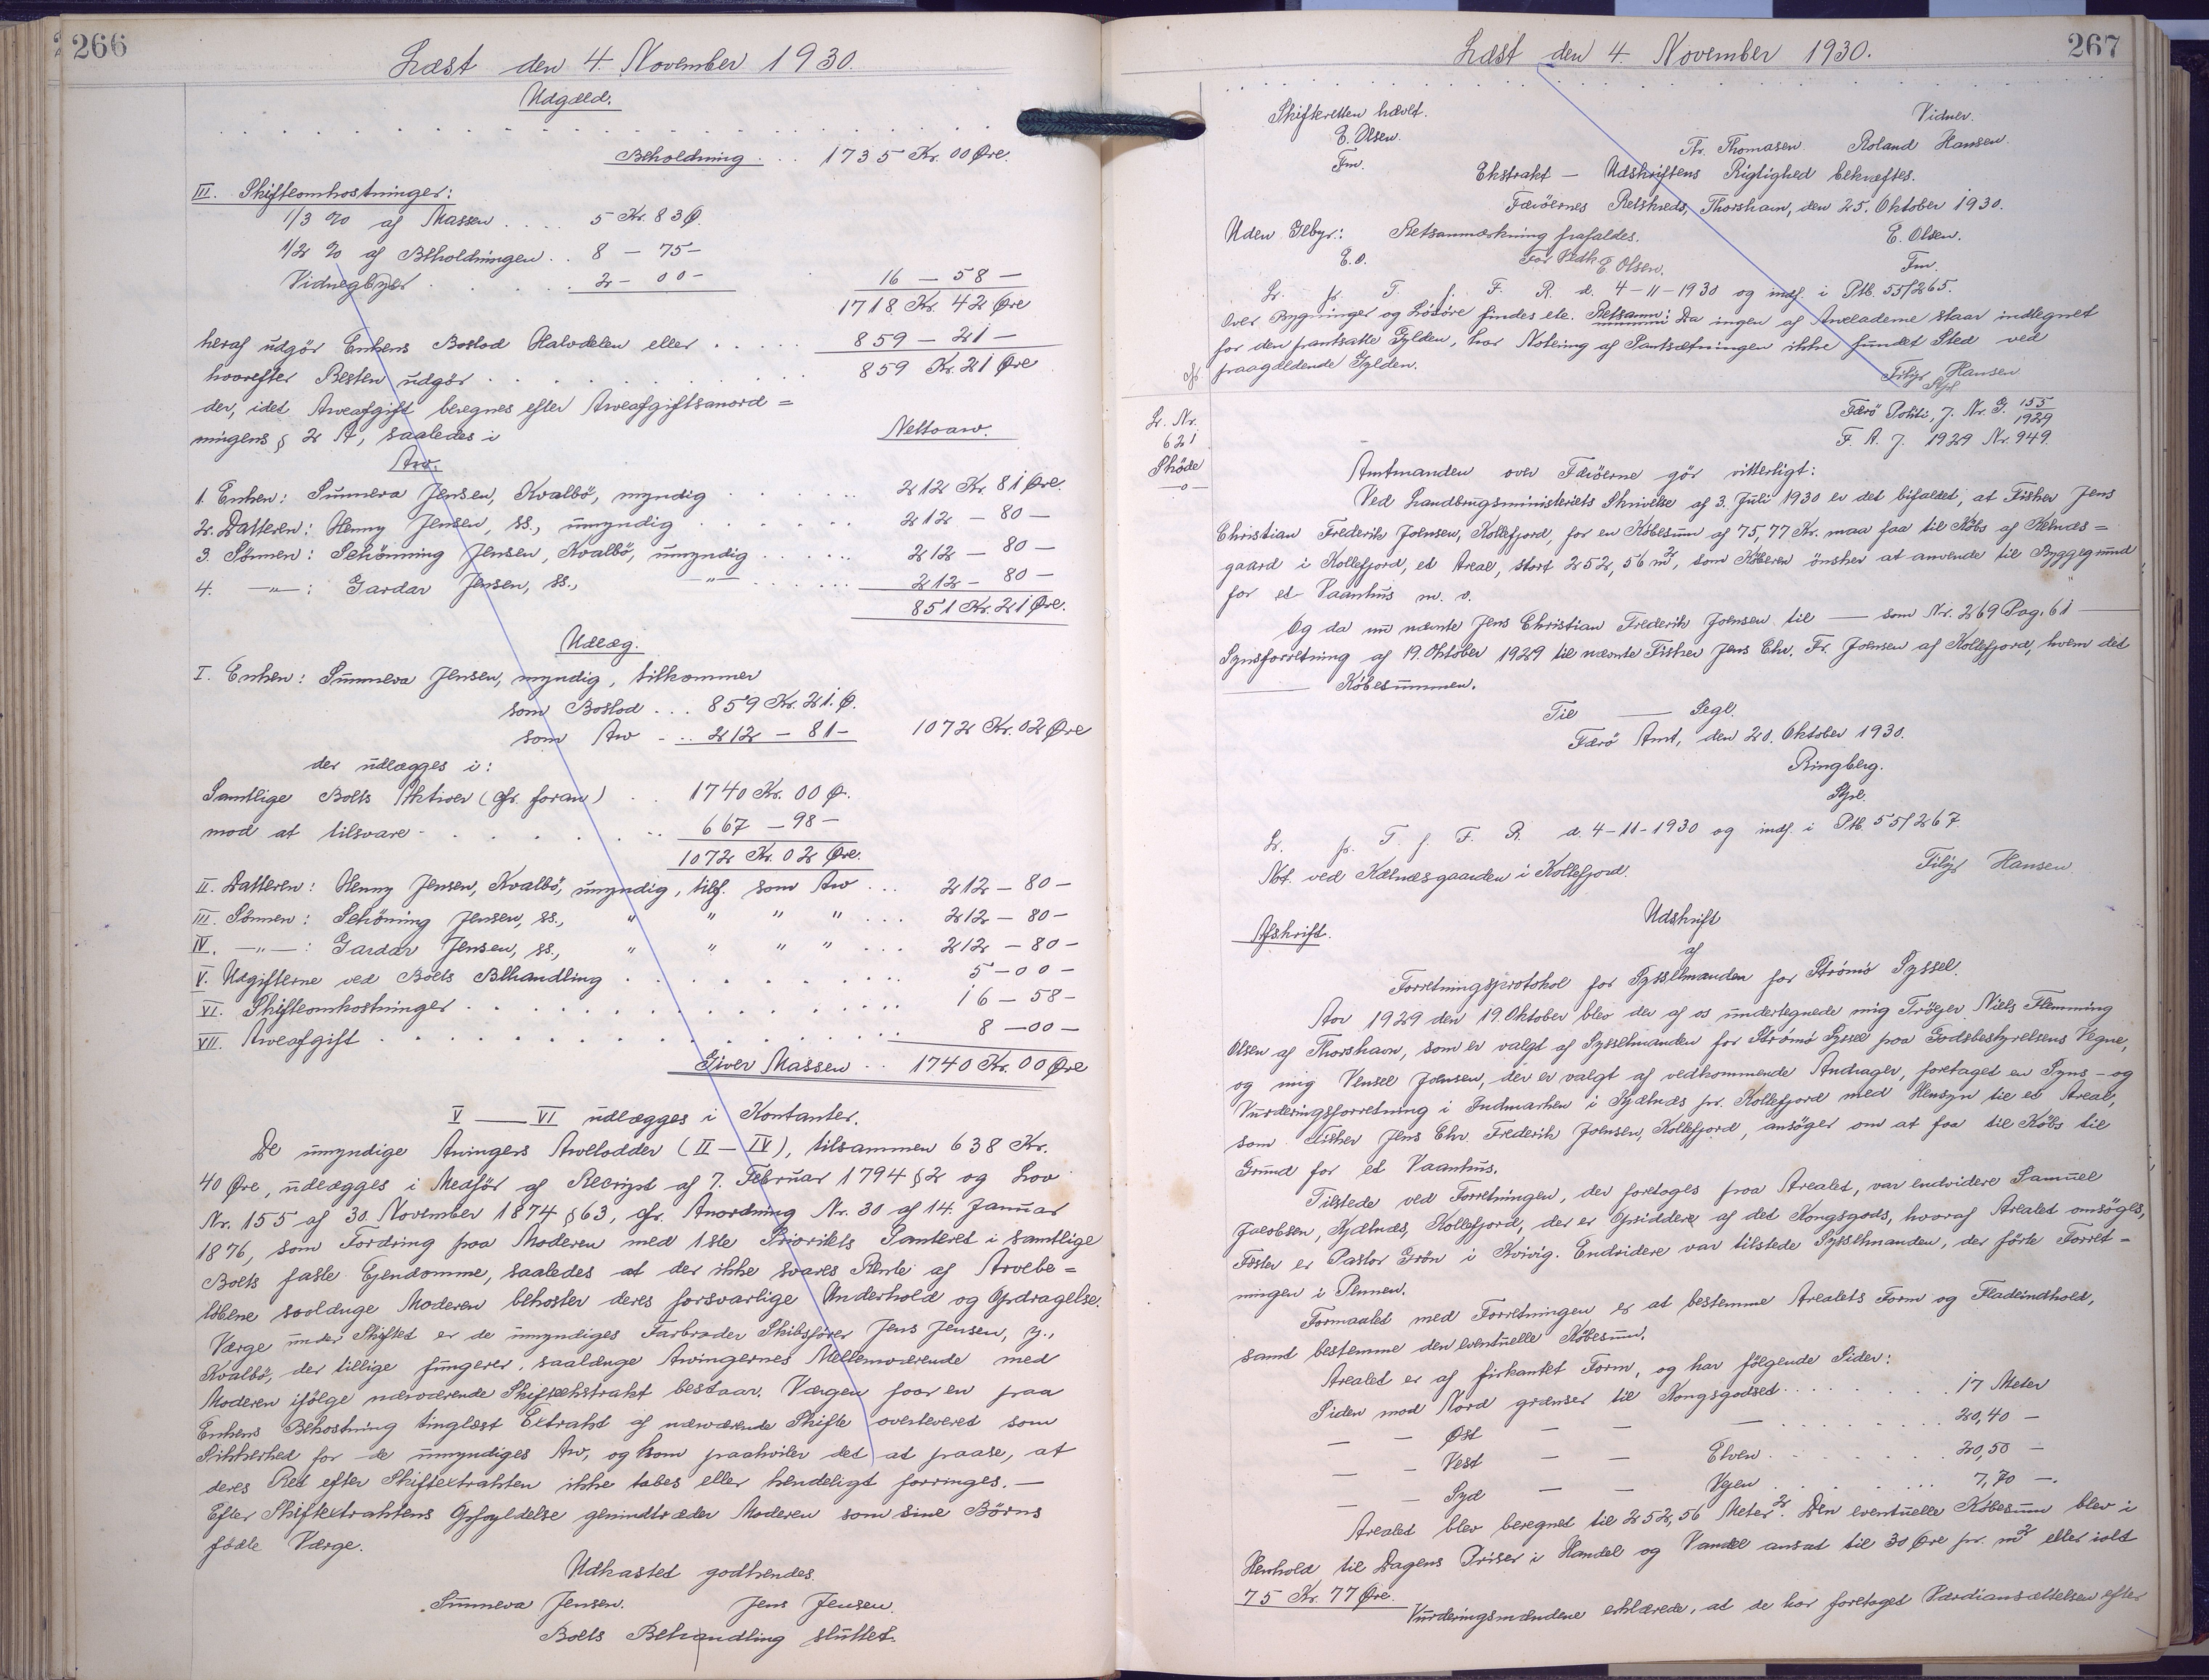 266
Læst den 4. November 1930.
Udgæld.
Beholdning . . . 1735 Kr. 00 Øre.
III. Skifteomkostninger:
1/3 % af Massen . . . . 5 Kr. 83 Ø.
1/2 % af Beholdningen . . 8 — 75 —
Vidnegebyr . . . . . 2 — 00 — 16 — 58 —
1718 Kr. 42 Øre
heraf udgör Enkens Boslod Halvdelen eller . . . . 859 — 21 —
hvorefter Resten udgör . . . . . . . . 859 Kr. 21 Øre
der, idet Arveafgift beregnes efter Arveafgiftsanord=
ningens § 2 A, saaledes i
Nettoarv.
Arv.
1. Enken: Sunneva Jensen, Kvalbö, myndig . . . . 212 Kr. 81 Øre.
2. Datteren: Henny Jensen, ss., umyndig . . . . . 212 — 80 —
3. Sönnen: Schönning Jensen, Kvalbö, umyndig . . . . . 212 — 80 —
4. —"—: Gardar Jensen, ss., —"— . . . . . 212 — 80 —
851 Kr. 21 Øre.
Udlæg.
I. Enken: Sunneva Jensen, myndig, tilkommer
som Boslod . . . 859 Kr. 21. Ø.
som Arv . . . 212 — 81 — 1072 Kr. 02 Øre
der udlægges i:
Samtlige Boets Aktiver (cfr. foran) . . 1740 Kr. 00 Ø.
mod at tilsvare . . . . . . . 667 — 98 —
1072 Kr. 02 Øre.
II. Datteren: Henny Jensen, Kvalbö, umyndig, tilf. som Arv . . . 212 — 80 —
III. Sönnen: Schöning Jensen, ss., " " " " . . . 212 — 80 —
IV. —"—: Gardar Jensen, ss., " " " " . . . 212 — 80 —
V. Udgifterne ved Boets Behandling . . . . . . . . 5 — 00 —
VI. Skifteomkostninger . . . . . . . . . . . . 16 — 58 —
VII. Arveafgift . . . . . . . . . . . . . . 8 — 00 —
Giver Massen . . 1740 Kr. 00 Øre
V —— VI udlægges i Kontanter.
De umyndige Arvingers Arvelodder (II — IV), tilsammen 638 Kr.
40 Øre, udlægges i Medför af Recript af 7. Februar 1794 § 2 og Lov
Nr. 155 af 30. November 1874 § 63, cfr. Anordning Nr. 30 af 14. Januar
1876, som Fordring paa Moderen med 1ste Prioritets Panteret i samtlige
Boets faste Ejendomme, saaledes at der ikke svares Rente af Arvebe=
löbene saalænge Moderen bekoster deres forsvarlige Underhold og Opdragelse.
Værge under Skiftet er de umyndiges Farbroder Skibsförer Jens Jensen, y.,
Kvalbö, der tillige fungerer, saalænge Arvingernes Mellemværende med
Moderen ifölge nærværende Skifteekstrakt bestaar. Værgen faar en paa
Enkens Bekostning tinglæst Extrakt af nærværende Skifte overleveret som
Sikkerhed for de umyndiges Arv, og ham paahviler det at paase, at
deres Ret efter Skifteextrakten ikke tabes eller hendeligt forringes. —
Efter Skifteextraktens Opfyldelse genindtræder Moderen som sine Börns
födte Værge.
Udkastet godkendes.
Sunneva Jensen. Jens Jensen.
Boets Behandling sluttet.
267
Læst den 4. November 1930.
Skifteretten hævet.
E. Olsen.
Fm.
Vidner.
Fr. Thomasen. Roland Hansen.
Ekstrakt — Udskriftens Rigtighed bekræftes.
Færöernes Retskreds, Thorshavn, den 25. Oktober 1930.
E. Olsen.
Fm.
Uden Gebyr: Retsanmærkning frafaldes.
E.O. For Vedk. E Olsen.
L. fr. T. f. F. R. d. 4-11-1930 og indf. i Ptb. 55/265.
Over Bygninger og Lösöre findes ele. Retsanm: Da ingen af Arveladerne staar indtegnet
for den pantsatte Gylden, har Notering af Pantsætningen ikke fundet Sted ved
paagældende Gylden.
Filip Hansen
Stpl
L. Nr.
621
Sköde
—o—
Færö Politi, J. Nr. G. 155/1929
F. A. J. 1929 Nr. 949.
Amtmanden over Færöerne gör vitterligt:
Ved Landbrugsministeriets Skrivelse af 3. Juli 1930 er det bifaldet, at Fisker Jens
Christian Frederik Joensen, Kollefjord, for en Köbesum af 75,77 Kr. maa faa til Köbs af Kelnæs=
gaard i Kollefjord, et Areal, stort 252,56 m², som Köberen önsker at anvende til Byggegrund
for et Vaanhus m. v.
Og da nu nævnte Jens Christian Frederik Joensen til —— som Nr. 269 Pag. 61 ——
Synsforretning af 19. Oktober 1929 til nævnte Fisker Jens Chr. Fr. Joensen af Kollefjord, hvem det
—— Köbesummen.
Til —— Segl.
Færö Amt, den 20. Oktober 1930.
Ringberg.
Stpl.
L. fr. T. f. F. R. d. 4-11-1930 og indf. i Ptb. 55/267
Not. ved Kælnæsgaarden i Kollefjord.
Filip Hansen
Afskrift.
Udskrift
af
Forretningsprotokol for Sysselmanden for Strömö Syssel.
Aar 1929 den 19. Oktober blev der af os undertegnede mig Tröjer Niels Flemming
Olsen af Thorshavn, som er valgt af Sysselmanden for Strömö Syssel paa Godsbestyrelsens Vegne,
og mig Vensel Joensen, der er valgt af vedkommende Andrager, foretaget en Syns- og
Vurderingsforretning i Indmarken i Kjælnæs pr. Kollefjord med Hensyn til et Areal,
som Fisker Jens Chr. Frederik Joensen, Kollefjord, ansöger om at faa til Köbs til
Grund for et Vaanhus.
Tilstede ved Forretningen, der foretoges paa Arealet, var endvidere Samuel
Jacobsen, Kjælnæs, Kollefjord, der er Opsidder af det Kongsgods, hvoraf Arealet ansöges,
Fæster er Pastor Grön i Kvivig. Endvidere var tilstede Sysselmanden, der förte Forret=
ningen i Pennen.
Formaalet med Forretningen er at bestemme Arealets Form og Fladeindhold,
samt bestemme den eventuelle Köbesum.
Arealet er af firkantet Form, og har fölgende Sider:
Siden mod Nord grænser til Kongsgodset . . . . . . . . 17 Meter
— — Øst — — — . . . . . . . . 20,40 —
— — Vest — — Elven . . . . . . . 20,50 —
— — Syd — — Vejen . . . . . . . 7,70 —.
Arealet blev beregnet til 252,56 Meter². Den eventuelle Köbesum blev i
Henhold til Dagens Priser i Handel og Vandel ansat til 30 Øre pr. m² eller ialt
75 Kr. 77 Øre.
Vurderingsmændene erklærede, at de har foretaget Værdiansættelsen efter